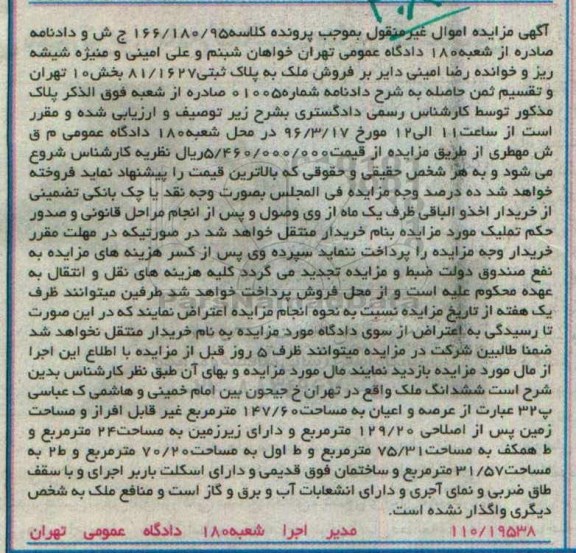 آگهی مزایده اموال غیرمنقول بموجب پرونده کلاسه۱۶۶/۱۸۰/۹۵ ج ش و دادنامه
صادره از شعبه۱۸۰ دادگاه عمومی تهران خواهان شبنم و علی امینی و منیژه شیشه
ریز و خوانده رضا امینی دایر بر فروش ملک به پلاک ثبتی۸۱/۱۶۲۷ بخش۱۰ تهران
و تقسیم ثمن حاصله به شرح دادنامه شماره۰۱۰۰۵ صادره از شعبه فوق الذکر پلاک
مذکور توسط کارشناس رسمی دادگستری بشرح زیر توصیف و ارزیابی شده و مقرر
است از ساعت۱۱ الی۱۲ مورخ ۹۶/۳/۱۷ در محل شعبه۱۸۰ دادگاه عمومی م ق
ش مهطری از طریق مزایده از قیمت۵/۴۶۰/۰۰۰/۰۰۰ریال نظریه کارشناس شروع
می شود و به هر شخص حقیقی و حقوقی که بالاترین قیمت را پیشنهاد نماید فروخته
خواهد شد ده درصد وجه مزایده فی المجلس بصورت وجه نقد یا چک بانکی تضمینی
از خریدار اخذو الباقی ظرف یک ماه از وی وصول و پس از انجام مراحل قانونی و صدور
حکم تملیک مورد مزایده بنام خریدار منتقل خواهد شد در صورتیکه در مهلت مقرر
خریدار وجه مزایده را پرداخت ننماید سپرده وی پس از کسر هزینه های مزایده به
نفع صندوق دولت ضبط و مزایده تجدید می گردد کلیه هزینه های نقل و انتقال به
عهده محکوم علیه است و از محل فروش پرداخت خواهد شد طرفین میتوانند ظرف
یک هفته از تاریخ مزایده نسبت به نحوه انجام مزایده اعتراض نمایند که در این صورت
تا رسیدگی به اعتراض از سوی دادگاه مورد مزایده به نام خریدار منتقل نخواهد شد
ضمنا طالبین شرکت در مزایده میتوانند ظرف ۵ روز قبل از مزایده با اطلاع این اجرا
از مال مورد مزایده بازدید نمایند مال مورد مزایده و بهای آن طبق نظر کارشناس بدین
شرح است ششدانگ ملک واقع در تهران خ جیحون بین امام خمینی و هاشمی ک عباسی
پ۳۲ عبارت از عرصه و اعیان به مساحت۱۴۷/۶۰ مترمربع غیر قابل افراز و مساحت
زمین پس از اصلاحی ۱۲۹/۲۰ مترمربع و دارای زیرزمین به مساحت۲۴ مترمربع و
ط همکف به مساحت۷۵/۳۱ مترمربع و ط اول به مساحت۷۰/۲۰ مترمربع و ط۲ به
مساحت۳۱/۵۷ مترمربع و ساختمان فوق قدیمی و دارای اسکلت باربر اجرای و با سقف
طاق ضربی و نمای آجری و دارای انشعابات آب و برق و گاز است و منافع ملک به شخص
دیگری واگذار نشده است.
۱۱۰/۱۹۵۳۸ مدیر اجرا شعبه۱۸۰ دادگاه عمومی تهران